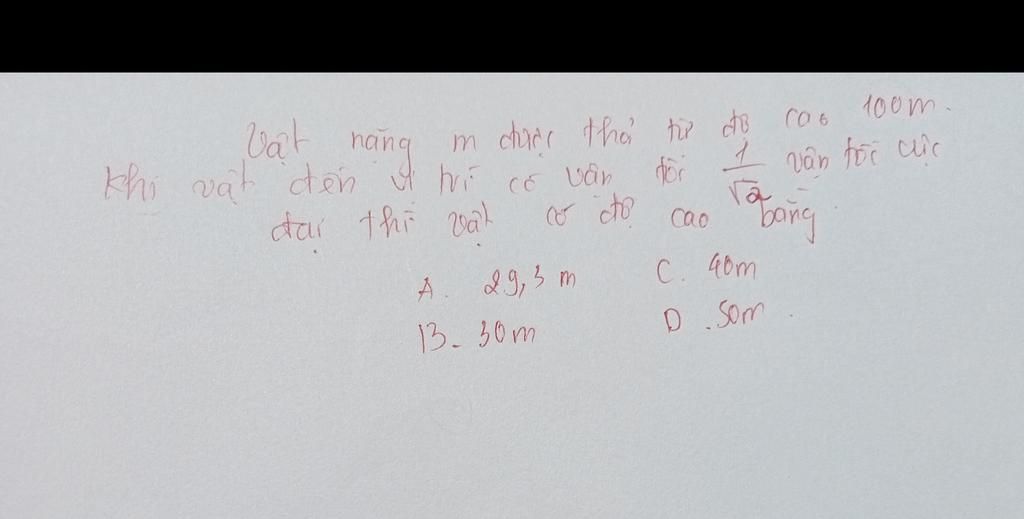 Vật nặng m được thả từ độ cao 100m.
Khi vật đến vị trí có vận tốc 1/√2 vận tốc cực
đại thì vật có độ cao bằng
A. 29,3 m C. 40m
B. 30m D. 50m.